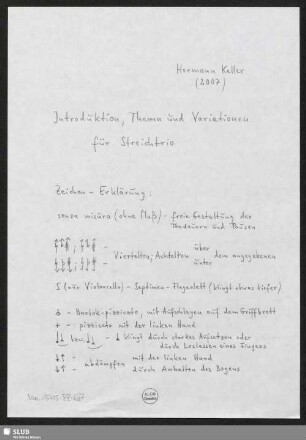 Hermann Keller
(2007)
Introduktion, Thema und Variationen
für Streichtrio
Zeichen-Erklärung:
senza misura (ohne Maß) - freie Gestaltung der
Tondauern und Pausen
Viertelton; Achtelton über dem angegebenen
unter
S (nur Violoncello) - Septimen-Flageolett (klingt etwas tiefer)
- Bartók-pizzicato, mit Aufschlagen auf dem Griffbrett
+ - pizzicato mit der linken Hand
bzw. - klingt durch starkes Aufsetzen oder
durch Loslassen eines Fingers
- abdämpfen mit der linken Hand
durch Anhalten des Bogens
SLUB
Wir führen Wissen.